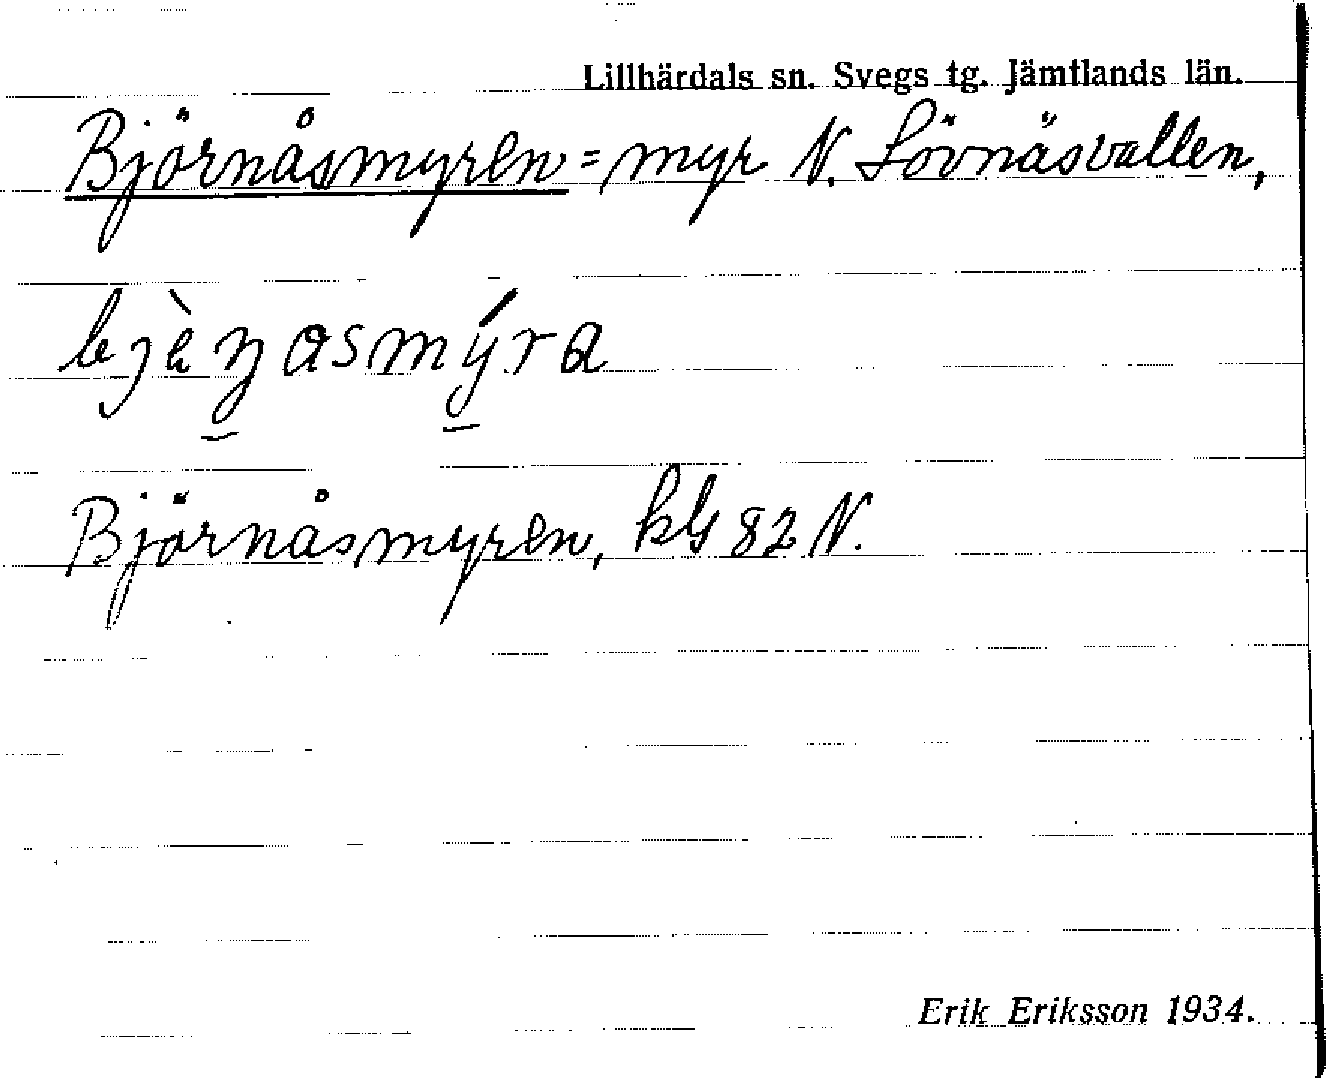 Lillhärdals sn. Svegs tg. Jämtlands län.
Björnåsmyren = myr N. Lövnäsvallen,
bjèn̠asmý̠ra
Björnåsmyren, kbl 82 N.
Erik Eriksson 1934.